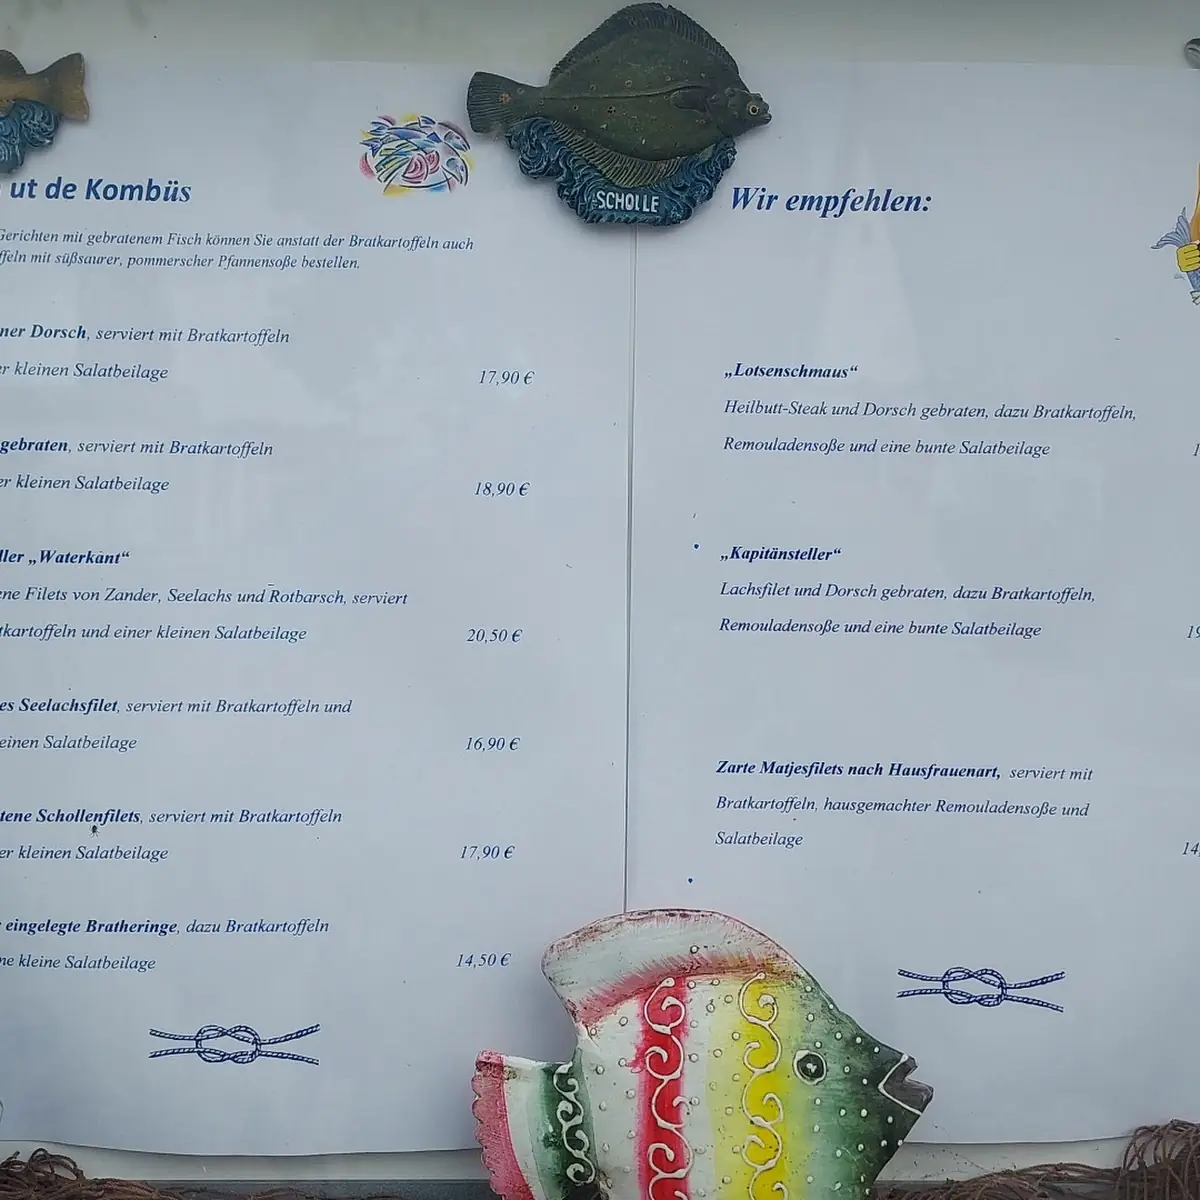 ut de Kombüs
Gerichten mit gebratenem Fisch können Sie anstatt der Bratkartoffeln auch
ffeln mit süßsaurer, pommerscher Pfannensoße bestellen.
ner Dorsch, serviert mit Bratkartoffeln
er kleinen Salatbeilage 17,90 €
gebraten, serviert mit Bratkartoffeln
er kleinen Salatbeilage 18,90 €
ller „Waterkant“
ene Filets von Zander, Seelachs und Rotbarsch, serviert
tkartoffeln und einer kleinen Salatbeilage 20,50 €
es Seelachsfilet, serviert mit Bratkartoffeln und
einen Salatbeilage 16,90 €
tene Schollenfilets, serviert mit Bratkartoffeln
er kleinen Salatbeilage 17,90 €
eingelegte Bratheringe, dazu Bratkartoffeln
ne kleine Salatbeilage 14,50 €
SCHOLLE
Wir empfehlen:
„Lotsenschmaus“
Heilbutt-Steak und Dorsch gebraten, dazu Bratkartoffeln,
Remouladensoße und eine bunte Salatbeilage
„Kapitänsteller“
Lachsfilet und Dorsch gebraten, dazu Bratkartoffeln,
Remouladensoße und eine bunte Salatbeilage 19
Zarte Matjesfilets nach Hausfrauenart, serviert mit
Bratkartoffeln, hausgemachter Remouladensoße und
Salatbeilage 14,